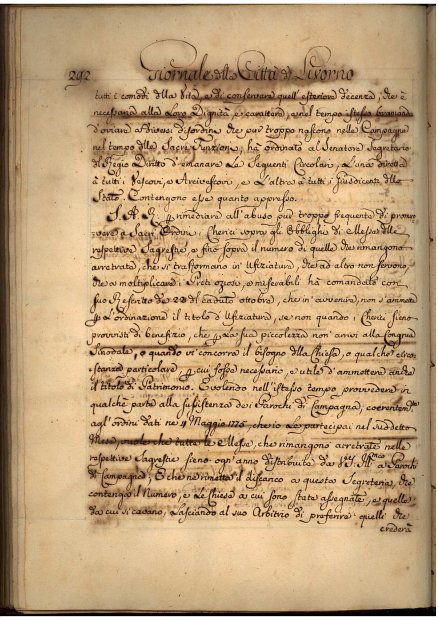 292 Giornale della Città di Livorno
tutti i comodi della Vita, e di conservare quell'esteriore decenza, che è
necessaria alla Loro Dignità, e carattere, e nel tempo istesso bramando
d'ovviare a diversi disordini che pur troppo nascono nelle Campagne
nel tempo delle Sacre Funzioni, ha ordinato al Senatore Segretario
del Regio Diritto d'emanare Le Seguenti Circolari, L'una diretta
à tutti i Vescovi, e Arcivescovi, e L'altra à tutti i Giusdicenti dello
Stato. Contengono esse quanto appresso.
S. A. R. p rimediare all'abuso pur troppo frequente di promo=
vere a Sacri Ordini i Cherici sopra gli Obblighi di Messe delle
respettive Sagrestie, e fino sopra il numero di quelle che rimangono
arretrate, che si trasformano in Ufiziature, che ad altro non servono,
che a moltiplicare i Preti oziosi, e miserabili ha comandato con
suo Rescritto de 28 del caduto ottobre, che in avvenire, non s'ammetta
p L'ordinazione il titolo d'Ufiziatura, se non quando i Cherici sieno
provvisti di benefizio, che p La sua piccolezza non arrivi alla Congrua
Sinodale, o quando vi concorra il bisogno della Chiesa, o qualche circo
stanza particolare p cui fosse necessario, e utile d'ammettere anche
il titolo di Patrimonio. E volendo nell'istesso tempo provvedere in
qualche parte alla sussistenza dei Parochi di Campagna, coerentemte
agl'ordini dati ne 4 Maggio 1775, che io Le partecipai nel suddetto
Mese, vuole che tutte le Messe, che rimangono arretrate nelle
respettive Sagrestie sieno ogni anno distribuite da a Parochi
di Campagna; E che ne rimetta il discarico a questa Segreteria, che
contenga il Numero, e Le Chiese a cui sono state assegnate, e quelle
da cui si cavano, Lasciando al suo Arbitrio di preferire quelli che
crederà